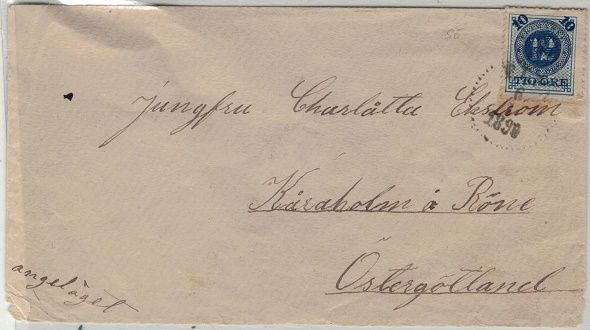 50
10 10
TIO ÖRE
1890
Jungfru Charlåtta Ekström
Kåraholm å Röne
Östergötland
angeläget